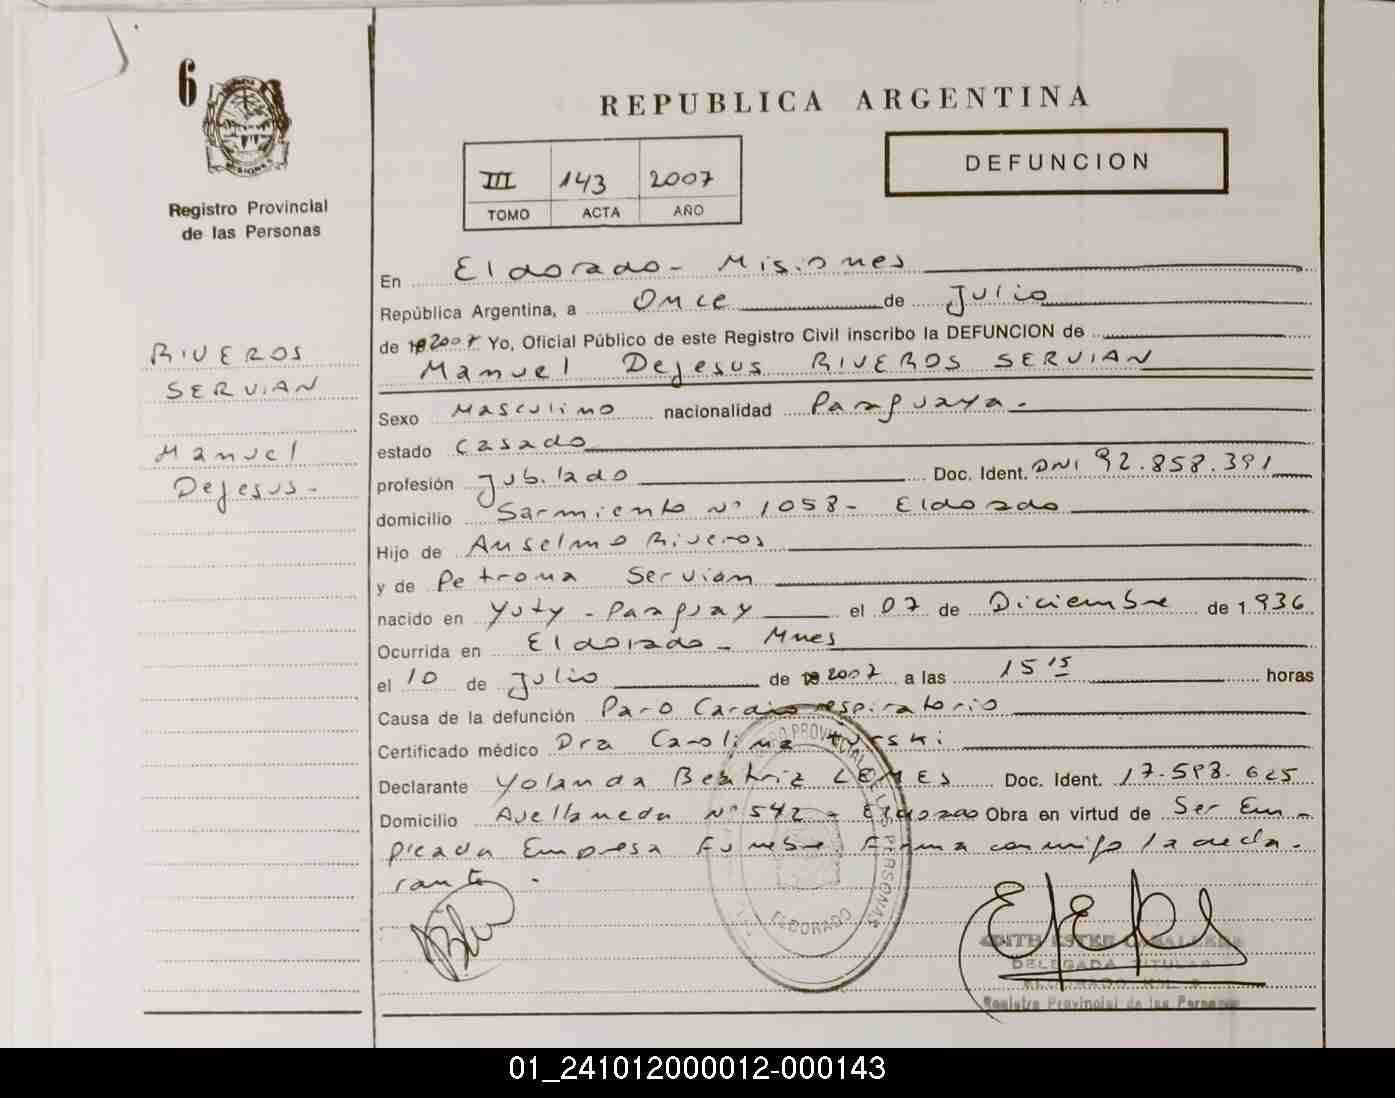 6
REPUBLICA ARGENTINA
DEFUNCION
III 143 2007
TOMO ACTA AÑO
Registro Provincial
de las Personas
RIVEROS
SERVIAN
Manuel
Dejesus.-
En Eldorado - Misiones
República Argentina, a Once de Julio
de 2007 Yo, Oficial Público de este Registro Civil inscribo la DEFUNCION de
Manuel Dejesus RIVEROS SERVIAN
Sexo Masculino nacionalidad Paraguaya.-
estado Casado
profesión Jubilado Doc. Ident. DNI 92.858.391
domicilio Sarmiento Nº 1058 - Eldorado
Hijo de Anselmo Riveros
y de Petrona Servian
nacido en Yuty - Paraguay el 07 de Diciembre de 1.936
Ocurrida en Eldorado - Mnes
el 10 de Julio de 2007 a las 15 15 horas
Causa de la defunción Paro Cardiorespiratorio
Certificado médico Dra Carolina
Declarante Yolanda Beatriz LEMES Doc. Ident. 17.593.625
Domicilio Avellaneda Nº 542 - Eldorado Obra en virtud de Ser Em-
pleada Empresa Funebre, Firma conmigo la decla-
rante.-
REGISTRO PROVINCIAL DE LAS PERSONAS
ELDORADO
EDITH ESTER CABALLERO
DELEGADA TITULAR
Registro Provincial de las Personas
01_241012000012-000143